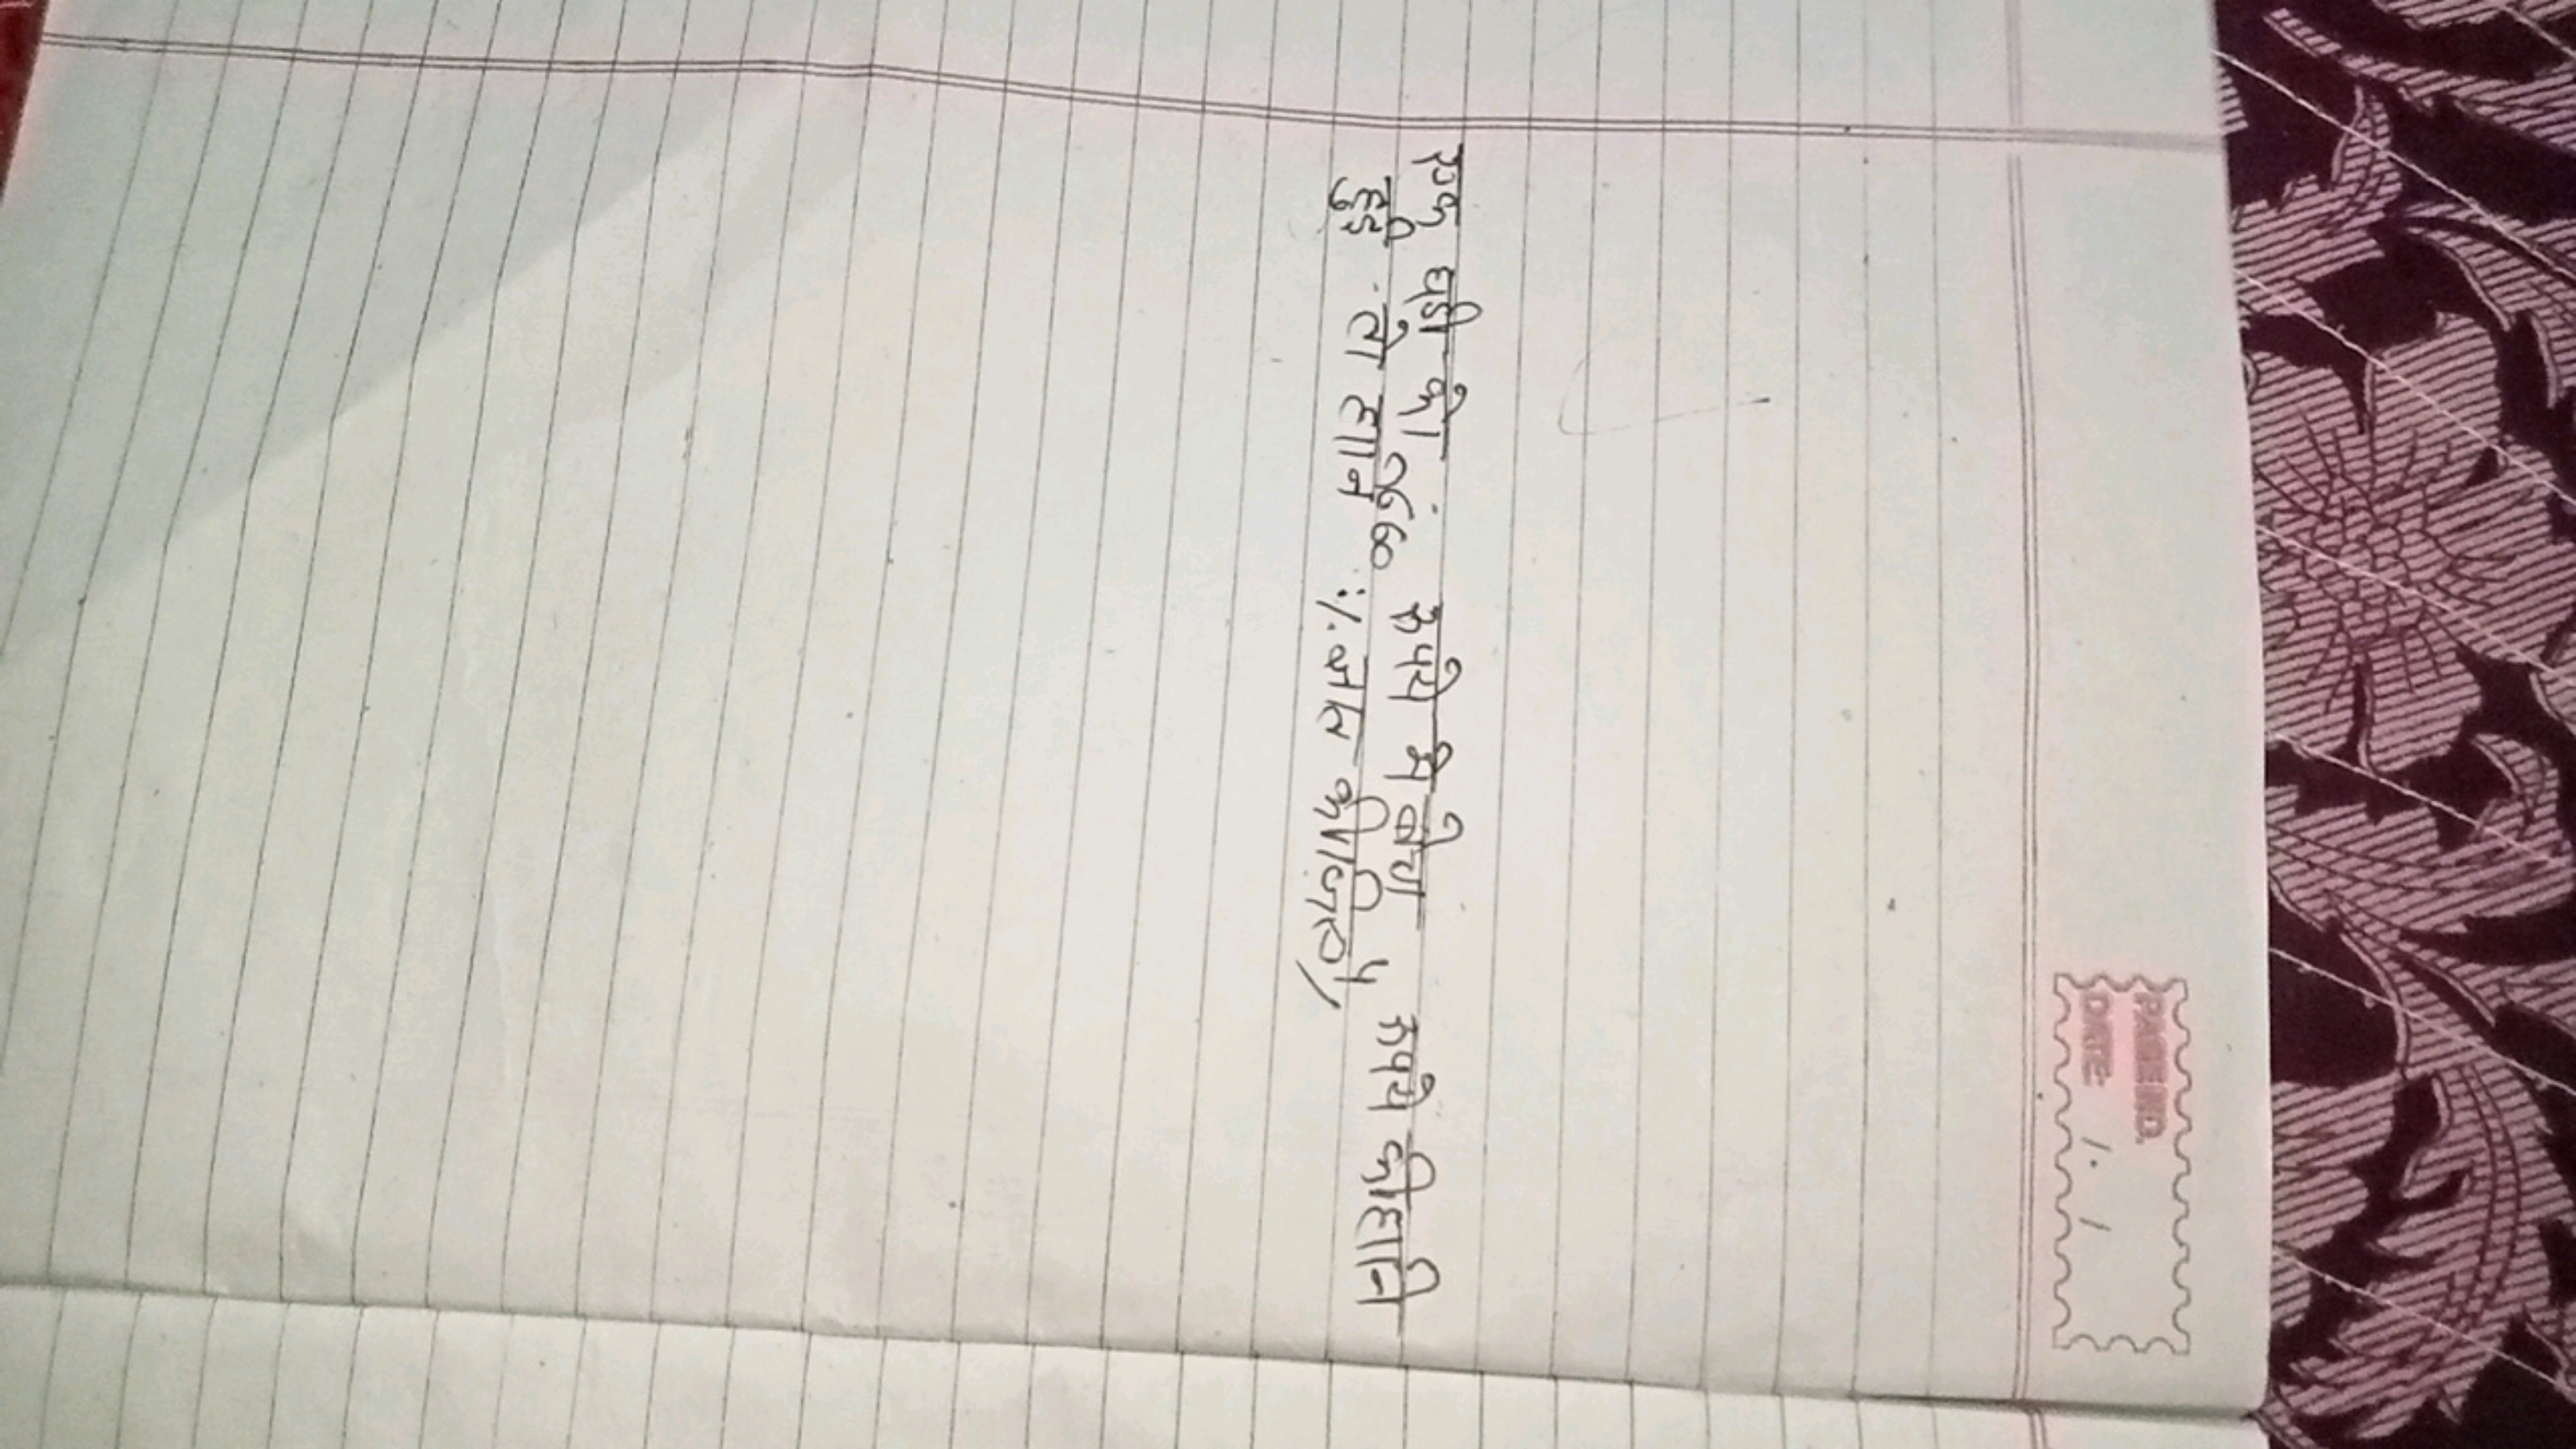 PAGE NO.
DATE: / /
एक घड़ी को २660 रूपये मे बेचा ५ रूपये की हानि
हुई तो हानि % ज्ञात कीजिए